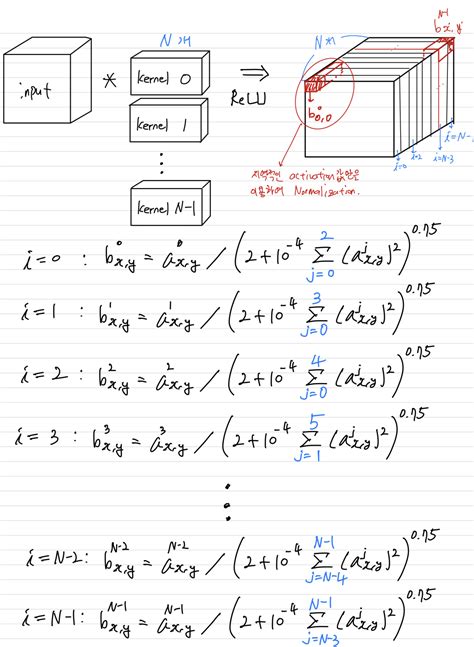 N개
N개
b^{N-1}_{x,y}
input * kernel 0 ⇒ ReLU
kernel 1
⋮
kernel N-1
b^0_{0,0}
i=0
i=2
i=N-3
i=N-1
지역적인 activation 값만을
이용하여 Normalization.
i=0 : b^0_{x,y} = a^0_{x,y} / (2+10^{-4} Σ_{j=0}^{2} (a^j_{x,y})^2)^{0.75}
i=1 : b^1_{x,y} = a^1_{x,y} / (2+10^{-4} Σ_{j=0}^{3} (a^j_{x,y})^2)^{0.75}
i=2 : b^2_{x,y} = a^2_{x,y} / (2+10^{-4} Σ_{j=0}^{4} (a^j_{x,y})^2)^{0.75}
i=3 : b^3_{x,y} = a^3_{x,y} / (2+10^{-4} Σ_{j=1}^{5} (a^j_{x,y})^2)^{0.75}
⋮
i=N-2: b^{N-2}_{x,y} = a^{N-2}_{x,y} / (2+10^{-4} Σ_{j=N-4}^{N-1} (a^j_{x,y})^2)^{0.75}
i=N-1: b^{N-1}_{x,y} = a^{N-1}_{x,y} / (2+10^{-4} Σ_{j=N-3}^{N-1} (a^j_{x,y})^2)^{0.75}